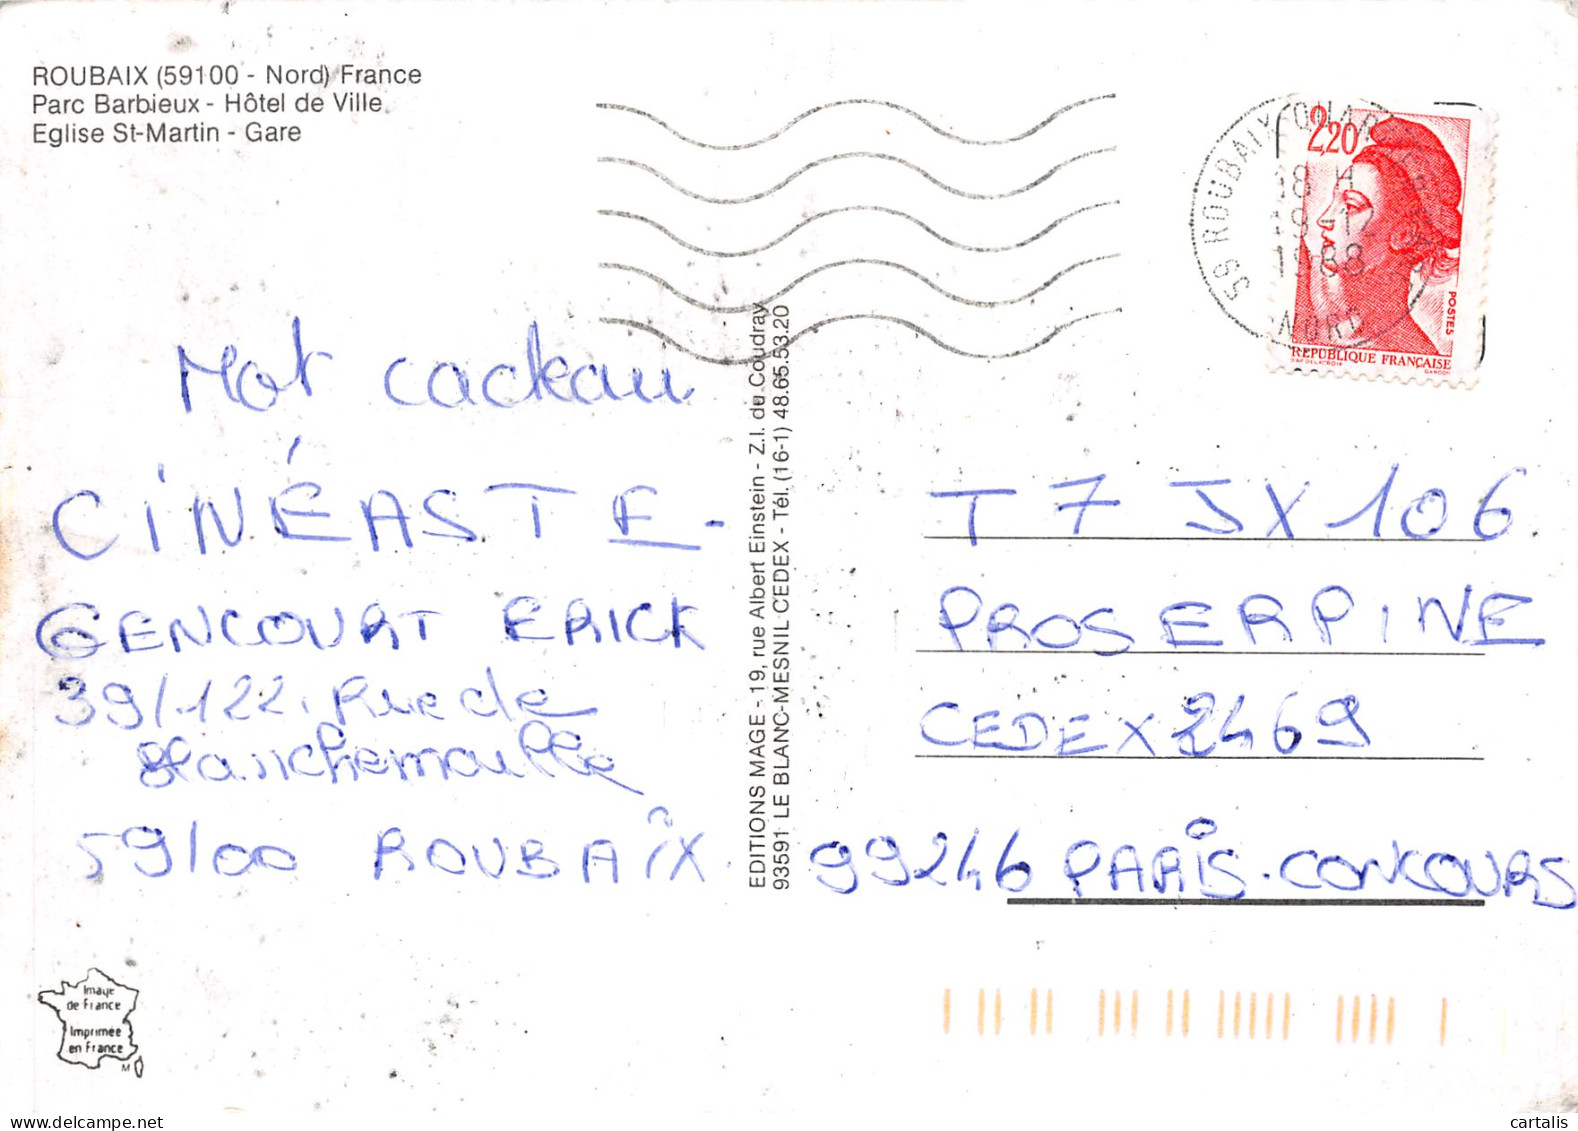 ROUBAIX (59100 - Nord) France
Parc Barbieux - Hôtel de Ville
Eglise St-Martin - Gare
2,20
59 ROUBAIX
18 H
1988
NORD
POSTES
REPUBLIQUE FRANÇAISE
Mot cadeau
CINÉASTE -
GENCOURT ERICK
39/122. Rue de
Blanchemaille
59100 ROUBAIX
EDITIONS MAGE - 19, rue Albert Einstein - Z.I. du Coudray
93591 LE BLANC-MESNIL CEDEX - Tél. (16-1) 48.65.53.20
T 7 J X 106
PROSERPINE
CEDEX 2469
99246 PARIS. CONCOURS
Image
de France
Imprimée
en France
M
cartalis